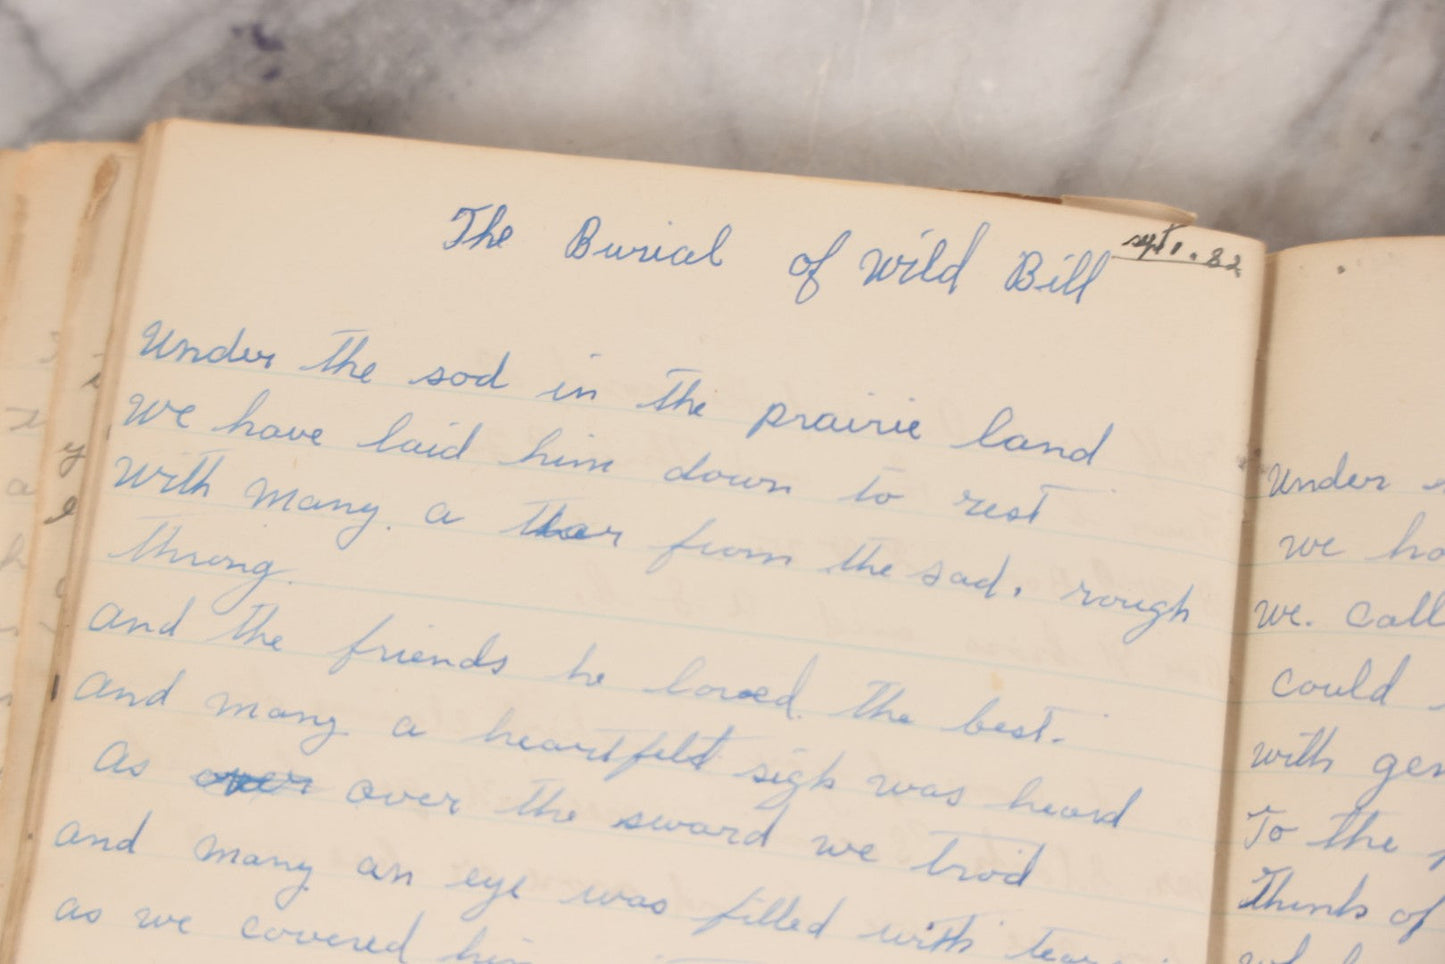 The Burial of Wild Bill
sept 1. 82
Under the sod in the prairie land
we have laid him down to rest
With many a tear from the sad, rough
throng.
and the friends he loved the best.
And many a heartfelt sigh was heard
As over over the sward we trod
and many an eye was filled with tear
as we covered him
Under
we ha
we. call
could
with gen
To the
Think of